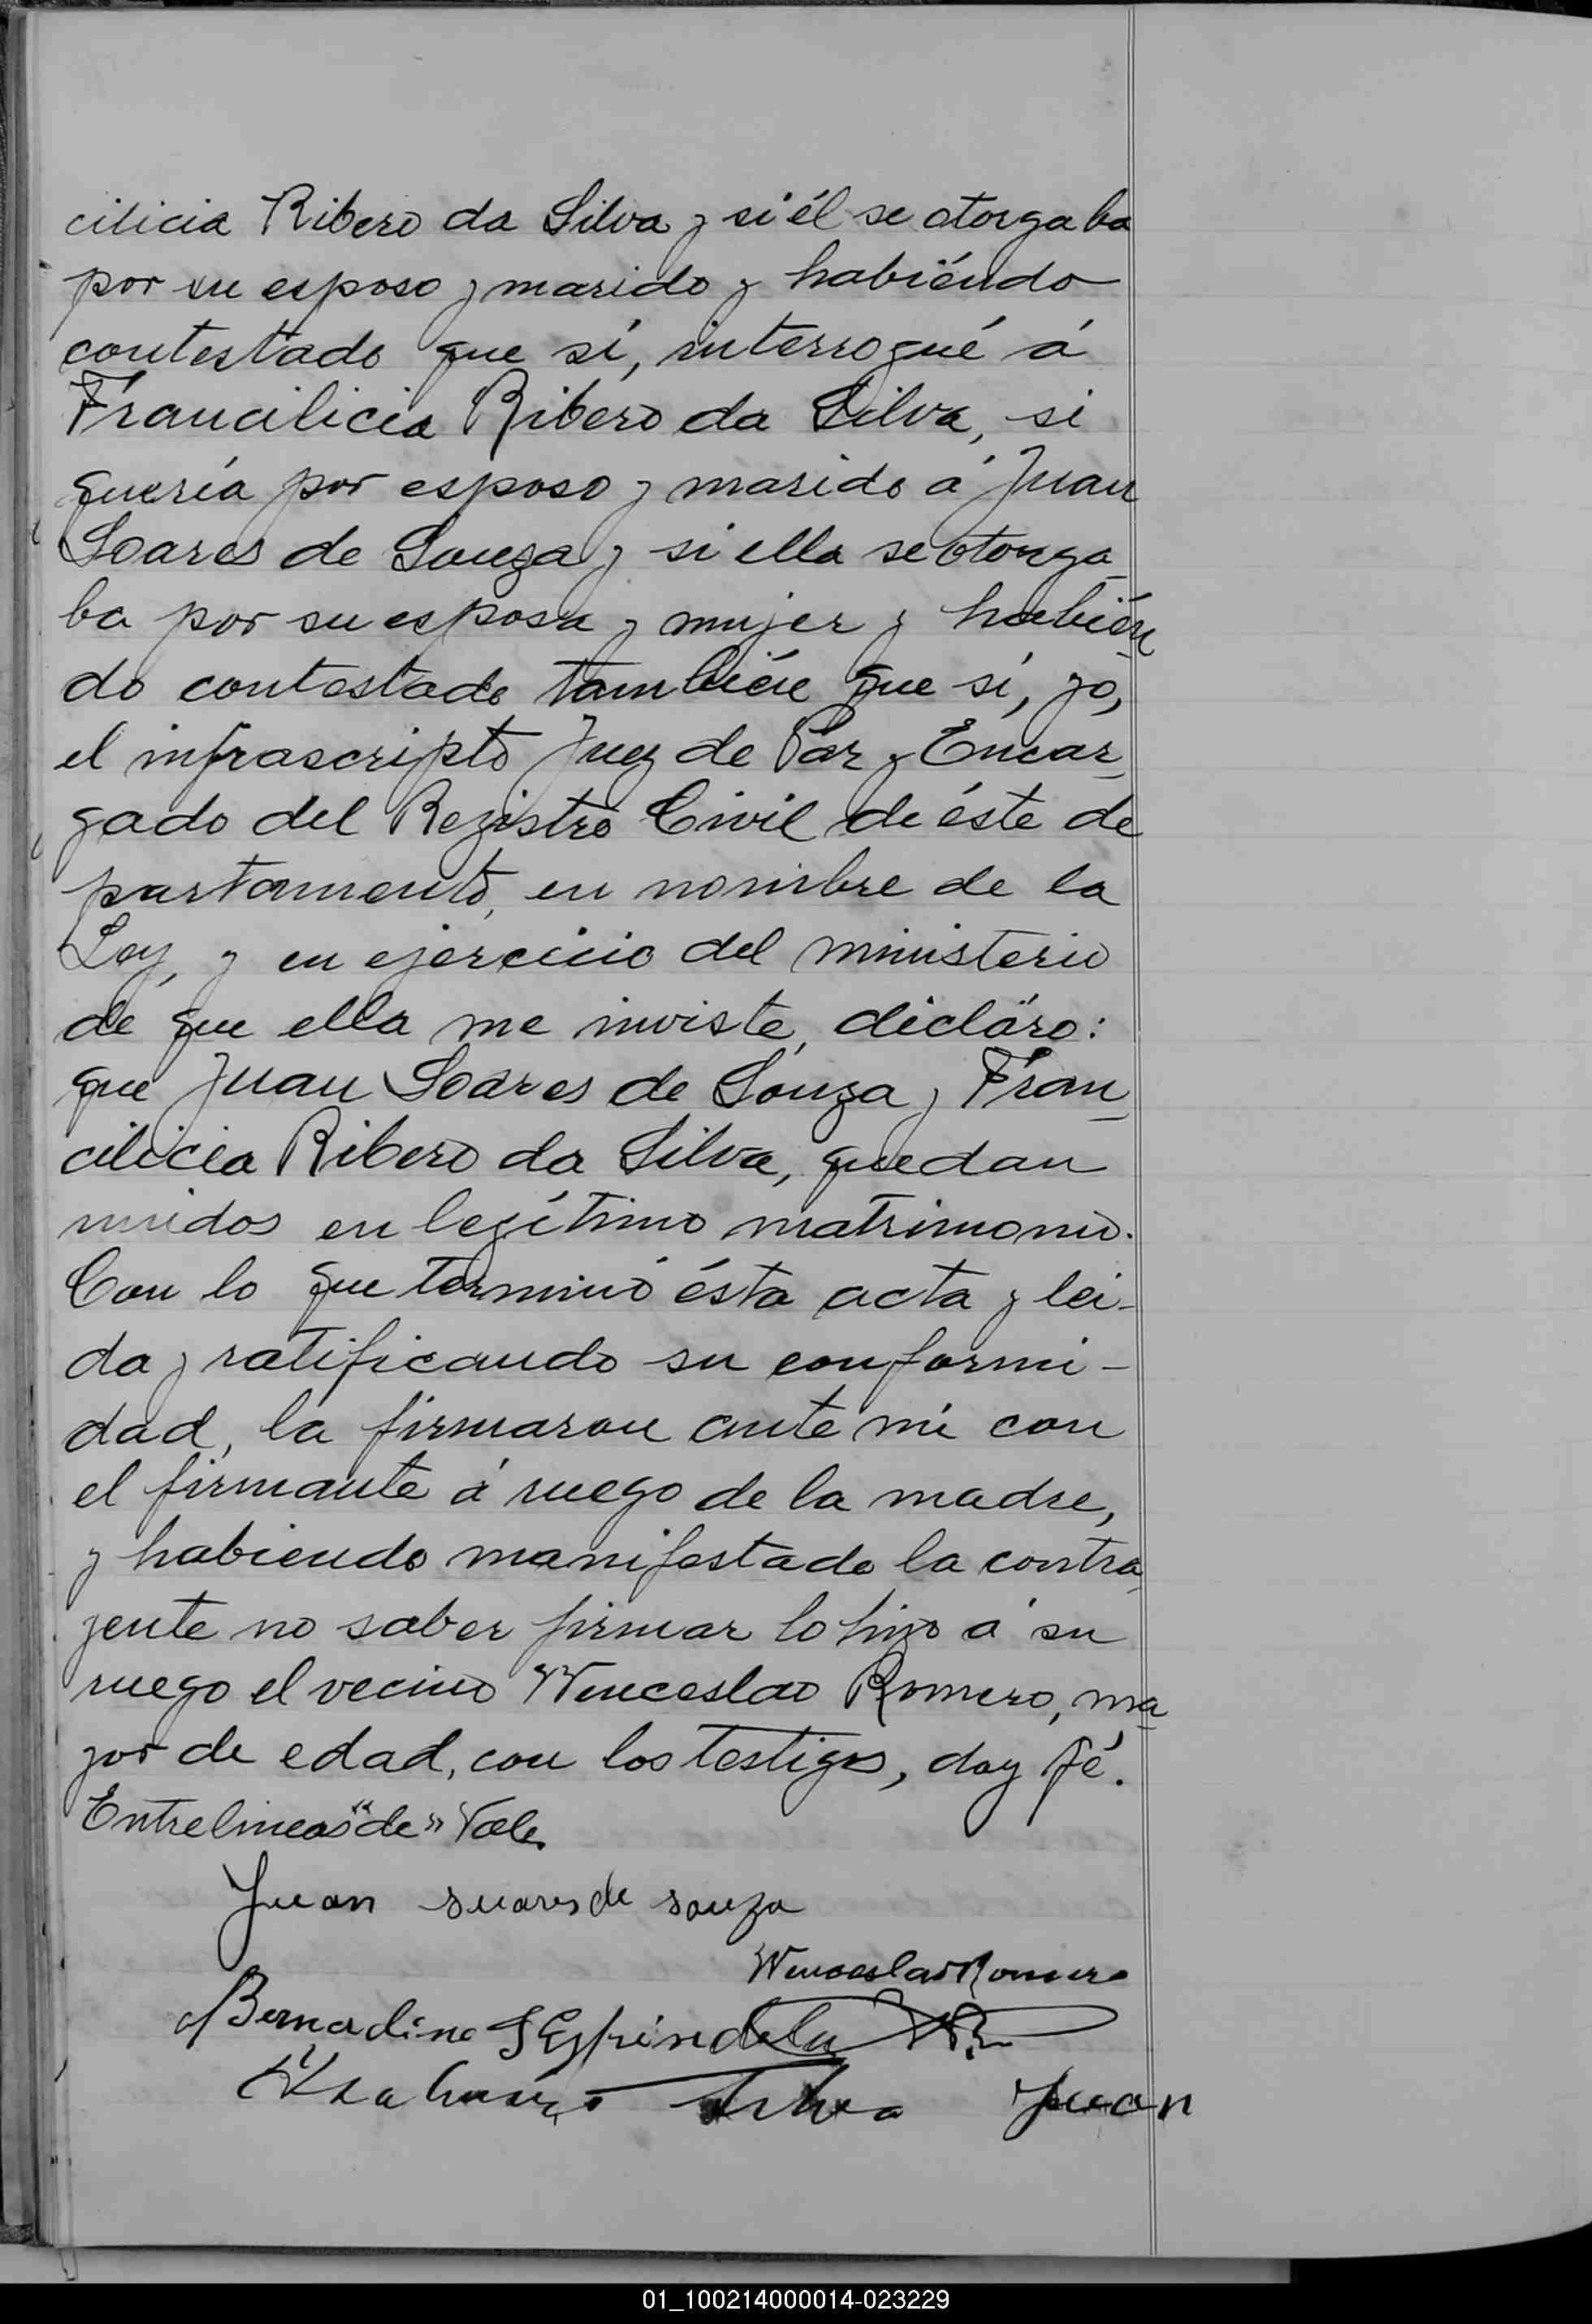 cilicia Ribero da Silva y si él se otorgaba
por su esposo y marido y habiéndo
contestado que sí, interrogué á
Francilicia Ribero da Silva, si
quería por esposo y marido á Juan
Soares de Souza y si ella se otorga
ba por su esposa y mujer y habién
do contestado también que sí, yo,
el infrascripto Juez de Paz y Encar
gado del Registro Civil de éste de
partamento, en nombre de la
Ley, y en ejercicio del ministerio
de que ella me inviste, declaro:
que Juan Soares de Souza y Fran
cilicia Ribero da Silva, quedan
unidos en legítimo matrimonio.
Con lo que terminó ésta acta y lei-
da y ratificando su conformi-
dad, la firmaron ante mí con
el firmante á ruego de la madre,
y habiendo manifestado la contra
yente no saber firmar lo hizo á su
ruego el vecino Wenceslao Romero, ma
yor de edad, con los testigos, doy fé.
Entrelineas "de" Vale.
Juan suares de souza
Wenceslao Romero
Bernardino S Espindola WR
Silva Juan
01_100214000014-023229